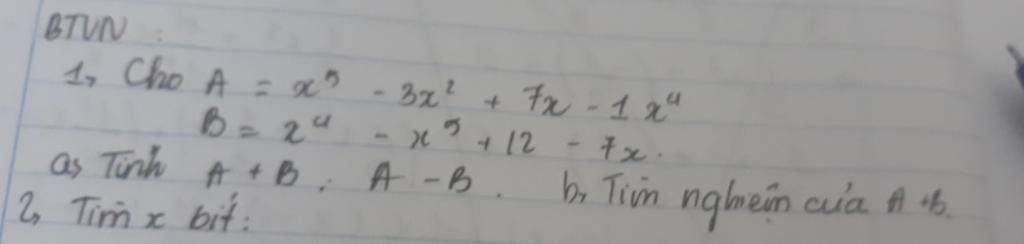 BTVN :
1, Cho A = x⁵ - 3x² + 7x - 1x⁴
B = x⁴ - x⁵ + 12 - 7x.
a, Tính A + B ; A - B. b, Tìm nghiệm của A + B.
2, Tìm x bít :